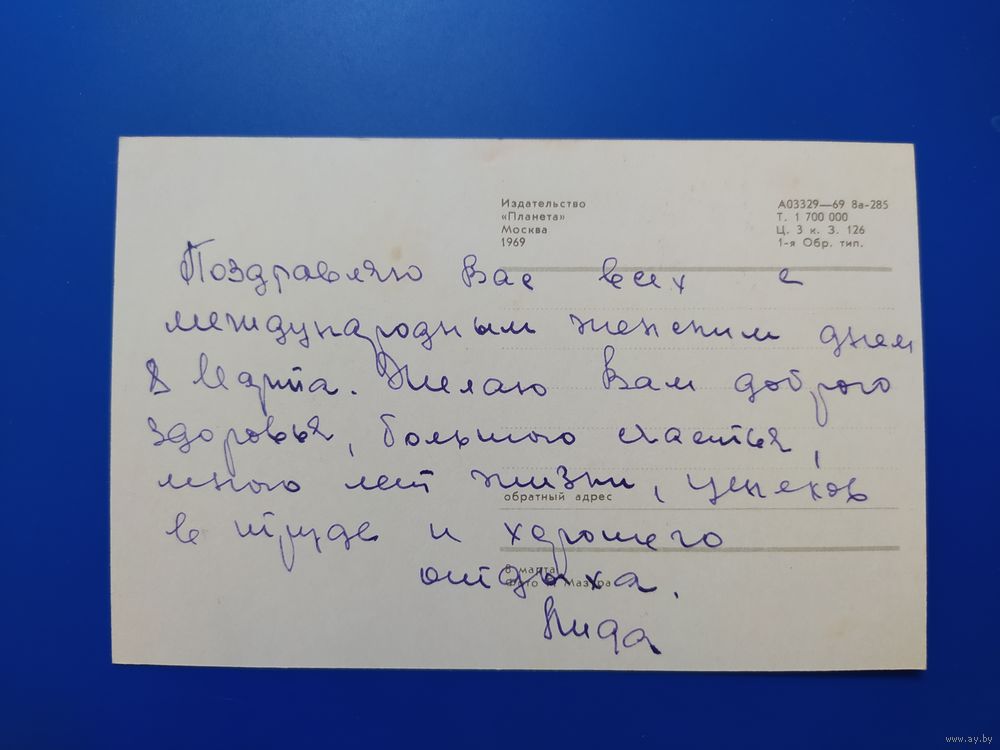 Издательство
«Планета»
Москва
1969
А03329—69 8а-285
Т. 1 700 000
Ц. 3 к. З. 126
1-я Обр. тип.
Поздравляю Вас всех с
международным женским днем
8 Марта. Желаю Вам доброго
здоровья, большого счастья,
много лет жизни, успехов
в труде и хорошего
отдыха.
обратный адрес
8 марта
Фото Мазура
www.ay.by